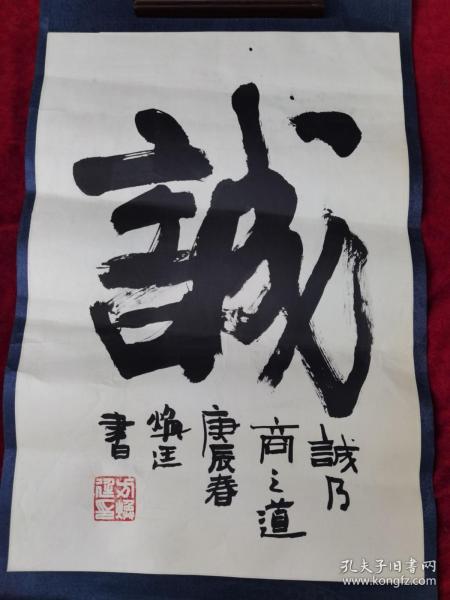 誠
誠乃
商之道
庚辰春
煥
書
孔夫子旧书网
www.kongfz.com